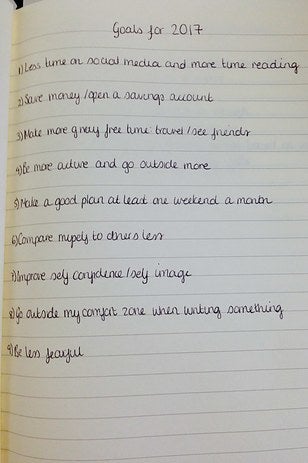 Goals for 2017
1) Less time on social media and more time reading
2) Save money / open a savings account
3) Make more of my free time travel / see friends
4) Be more active and go outside more
5) Make a good plan at least one weekend a month
6) Compare myself to others less
7) Improve self confidence / self image
8) Go outside my comfort zone when writing something
9) Be less fearful